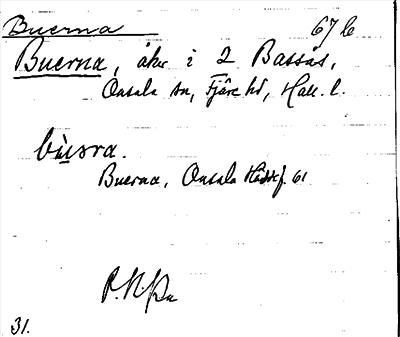 Buerna 67 b
Buerna, åker i 2 Bassås,
Onsala sn, Fjäre hd, Hall. l.
bùsra.
Buerna, Onsala Hdskf. 61
31.